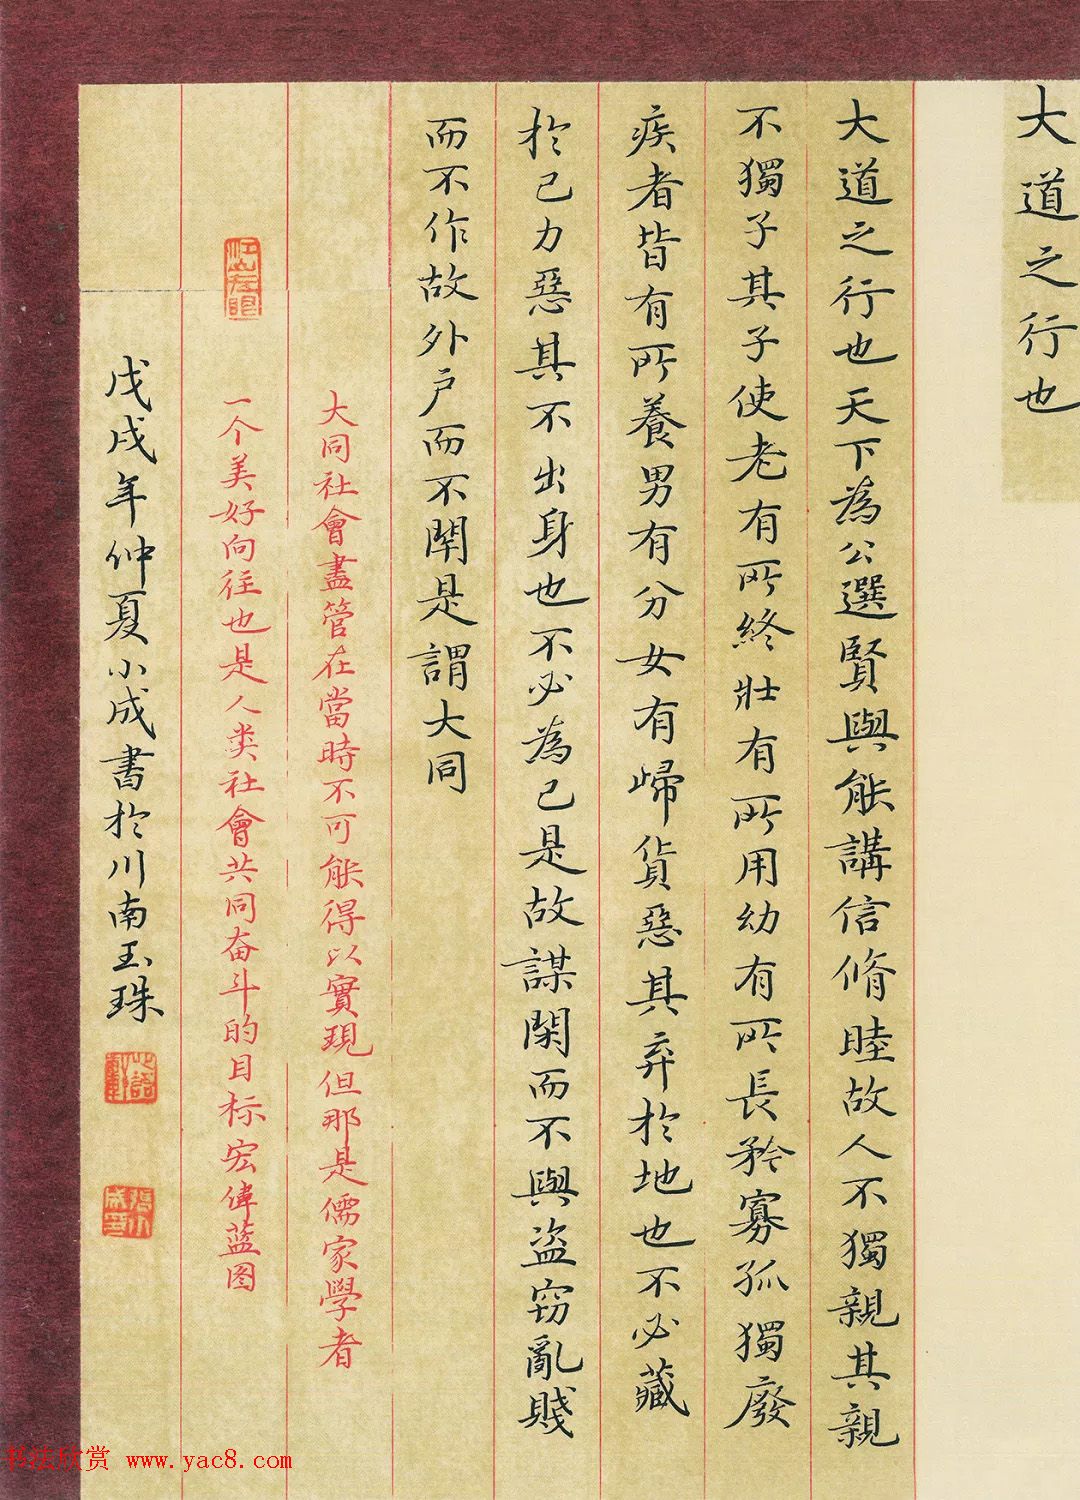 大道之行也
大道之行也天下為公選賢與能講信脩睦故人不獨親其親
不獨子其子使老有所終壯有所用幼有所長矜寡孤獨廢
疾者皆有所養男有分女有歸貨惡其弃於地也不必藏
於己力惡其不出身也不必為己是故謀閉而不與盜窃亂賤
而不作故外户而不閉是謂大同
大同社會盡管在當時不可能得以實現但那是儒家學者
一个美好向往也是人类社會共同奋斗的目标宏偉蓝图
戊戌年仲夏小成書於川南玉珠
书法欣赏 www.yac8.com